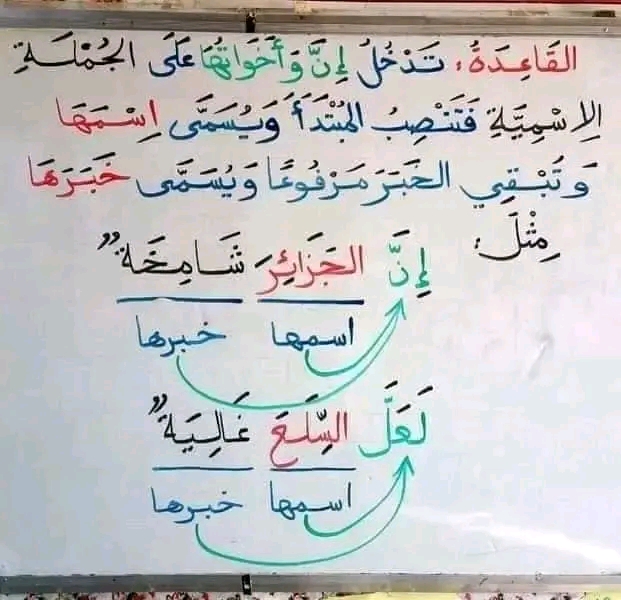 القَاعِدَةُ: تَدْخُلُ إِنَّ وَأَخَوَاتُهَا عَلَى الجُمْلَةِ
الِاسْمِيَّةِ فَتَنْصِبُ المُبْتَدَأَ وَيُسَمَّى اِسْمَهَا
وَتُبْقِي الخَبَرَ مَرْفُوعًا وَيُسَمَّى خَبَرَهَا
مِثْلَ:
إِنَّ الجَزَائِرَ شَامِخَةٌ
اسمها خبرها
لَعَلَّ السِّلَعَ غَالِيَةٌ
اسمها خبرها